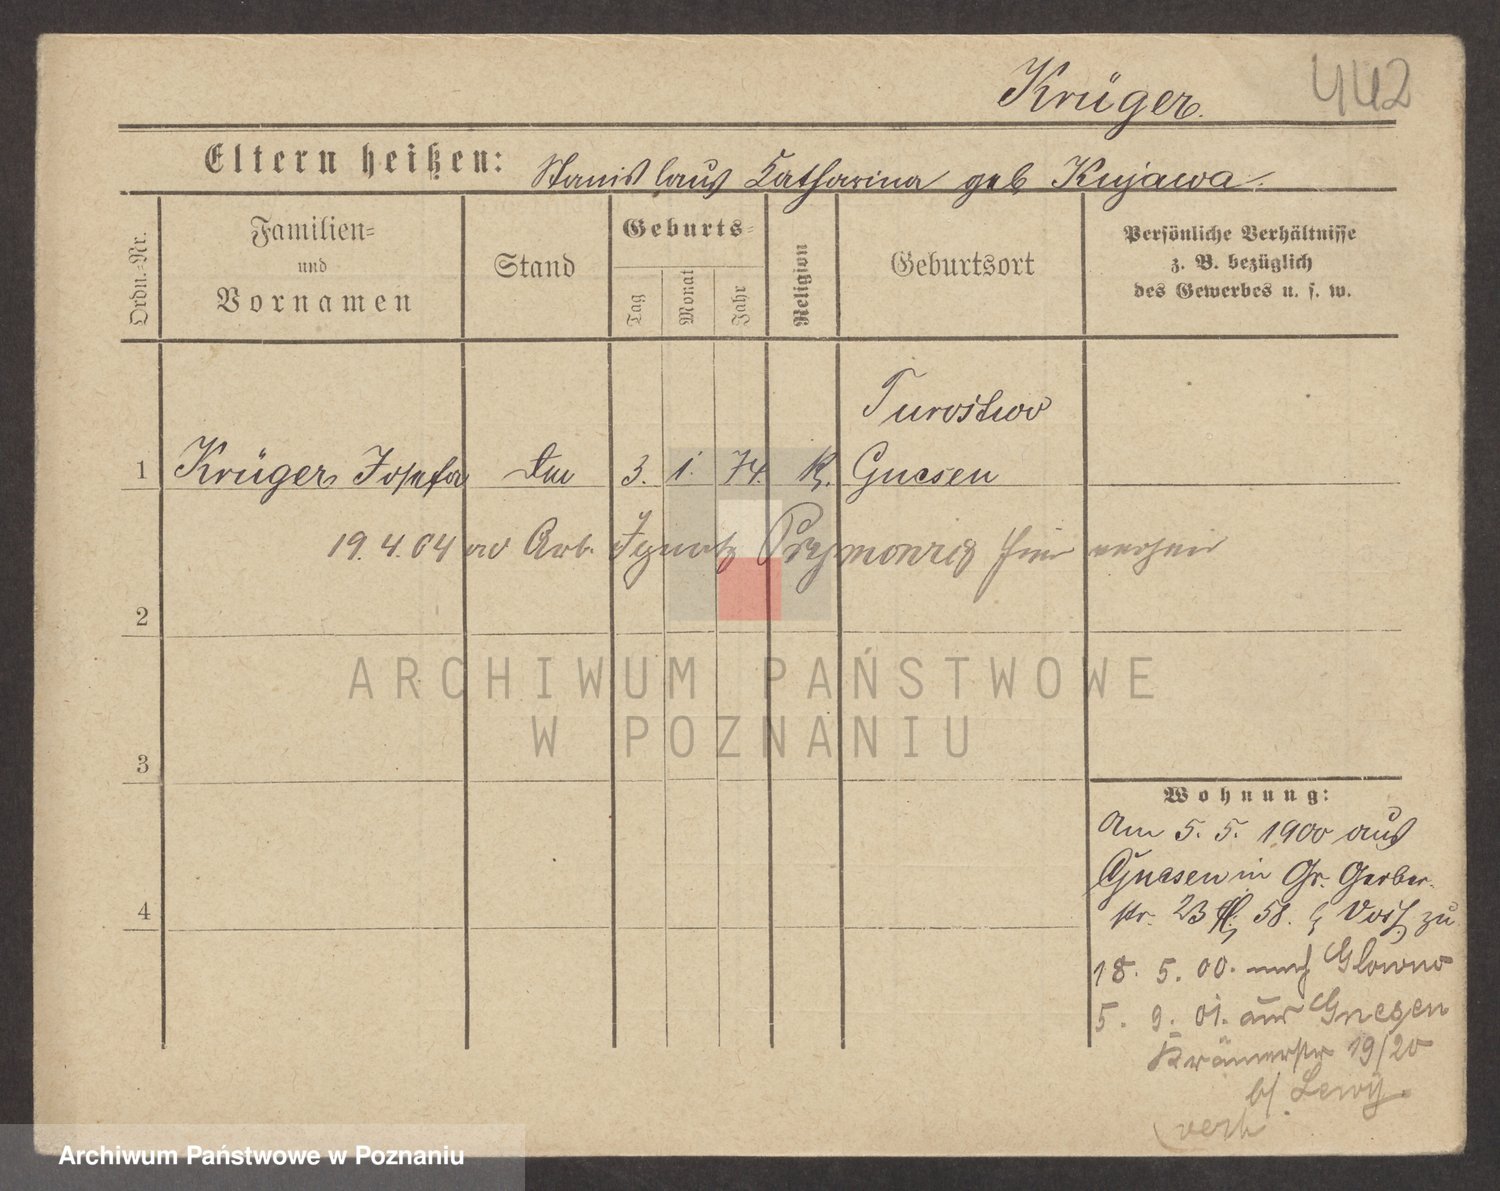 Krüger.
442
Eltern heißen: Stanislaus Catharina geb Kujawa.
Ordn.=Nr.
Familien=
und
Vornamen
Stand
Geburts=
Tag
Monat
Jahr
Religion
Geburtsort
Persönliche Verhältnisse
z. B. bezüglich
des Gewerbes u. s. w.
Turostwo
1 Krüger Josefa 3. 1. 74. K. Gnesen
19.4.04 Arb. Ignatz hier
2
3
4
Wohnung:
Am 5. 5. 1900 aus
Gnesen in Gr. Gerber-
str. 23 58. zu
18. 5. 00. nach Glowno
5. 9. 01. aus Gnesen
Krämerstr 19/20
b/ Lewy.
verh
ARCHIWUM PAŃSTWOWE
W POZNANIU
Archiwum Państwowe w Poznaniu